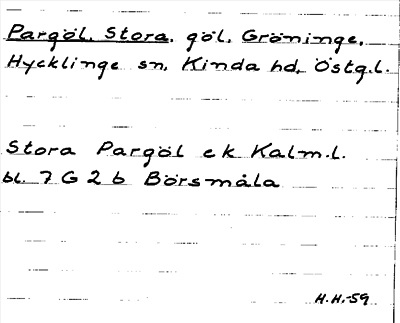 Pargöl, Stora, göl, Gröninge,
Hycklinge sn, Kinda hd, Östg.l.
Stora Pargöl ek Kalm.l.
bl. 7 G 2 b Börsmåla
H.H.-59